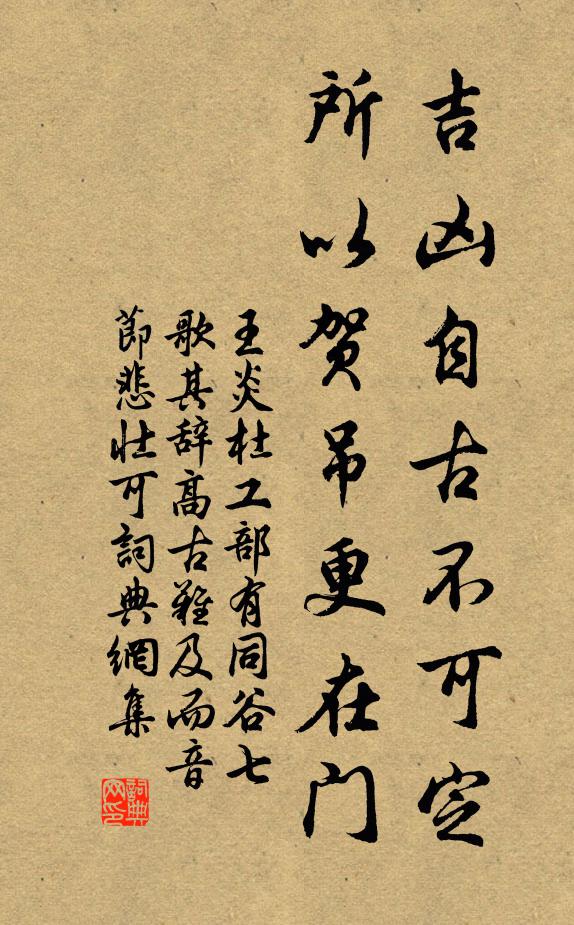 吉凶自古不可定
所以贺吊更在門
王炎杜工部有同谷七
歌其辞高古难及而音
節悲壮可詞典網集
詞典网印